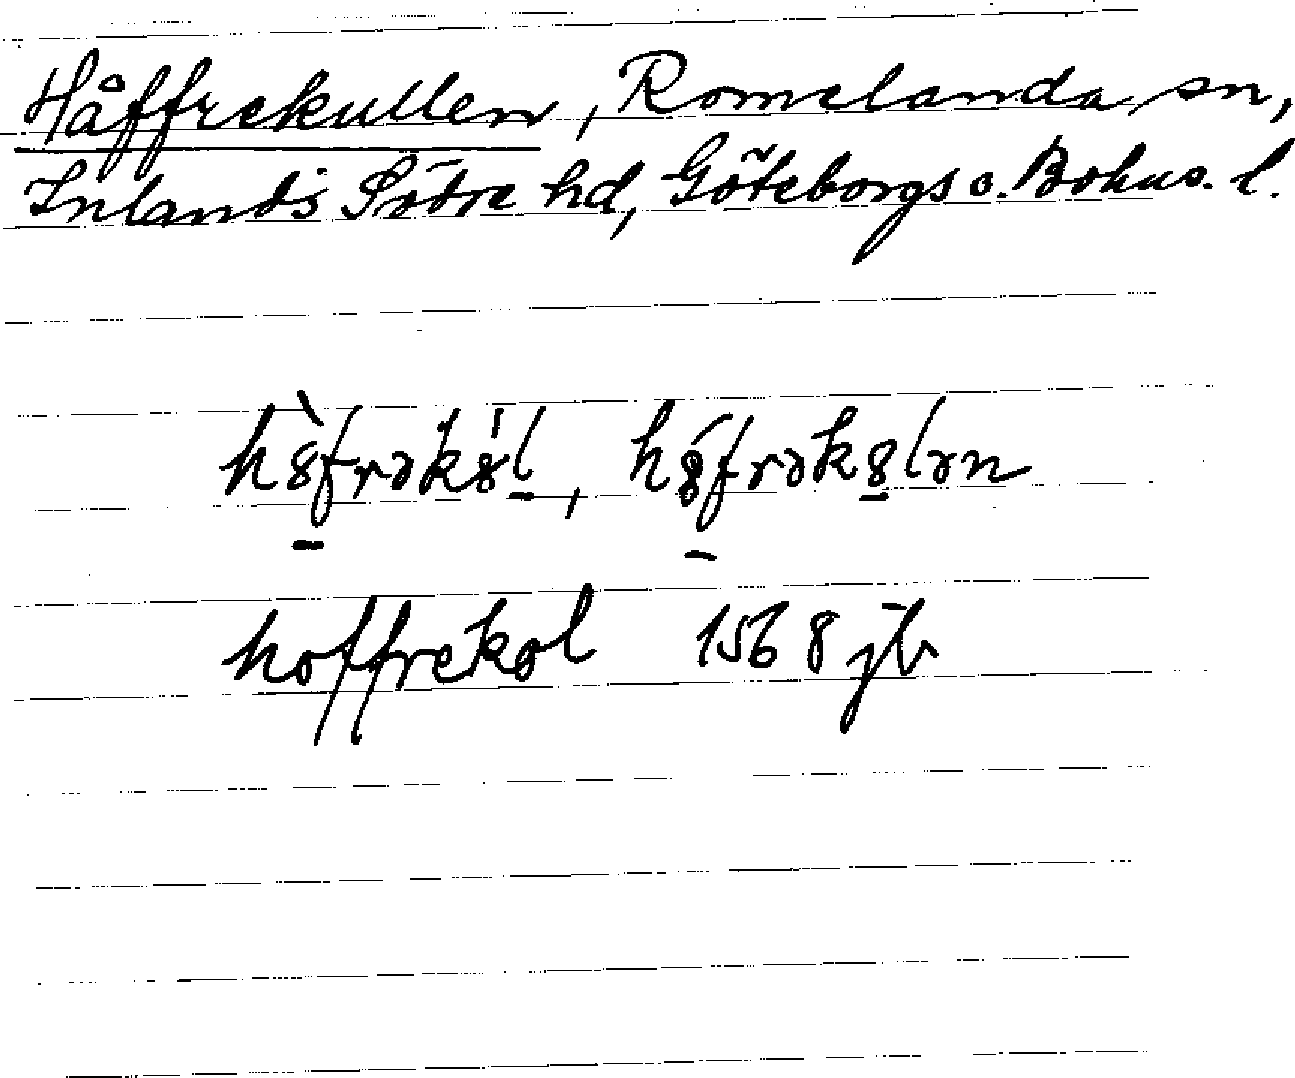 Håffrekullen, Romelanda sn,
Inlands Södre hd, Göteborgs o. Bohus. l.
hȣ̀frəkȣ́l, hȣ́frəkȣlən
hoffrekol 1568 jb